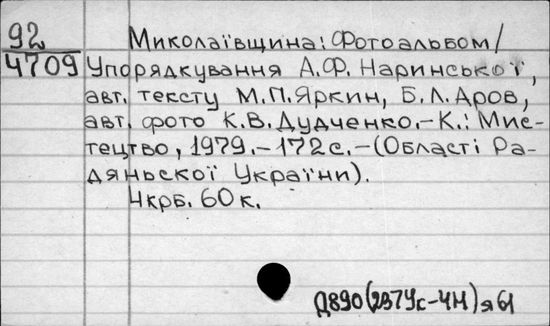 92
4709
Миколаївщина: Фотоальбом/
Упорядкування А.Ф. Наринської,
авт. тексту М.П. Яркин, Б.Л. Аров,
авт. фото К.В. Дудченко.-К.: Мис-
тецтво, 1979.-172с.-(Області Ра-
дяньскої України).
4крб. 60к.
Д890(237Ус-4М)я61